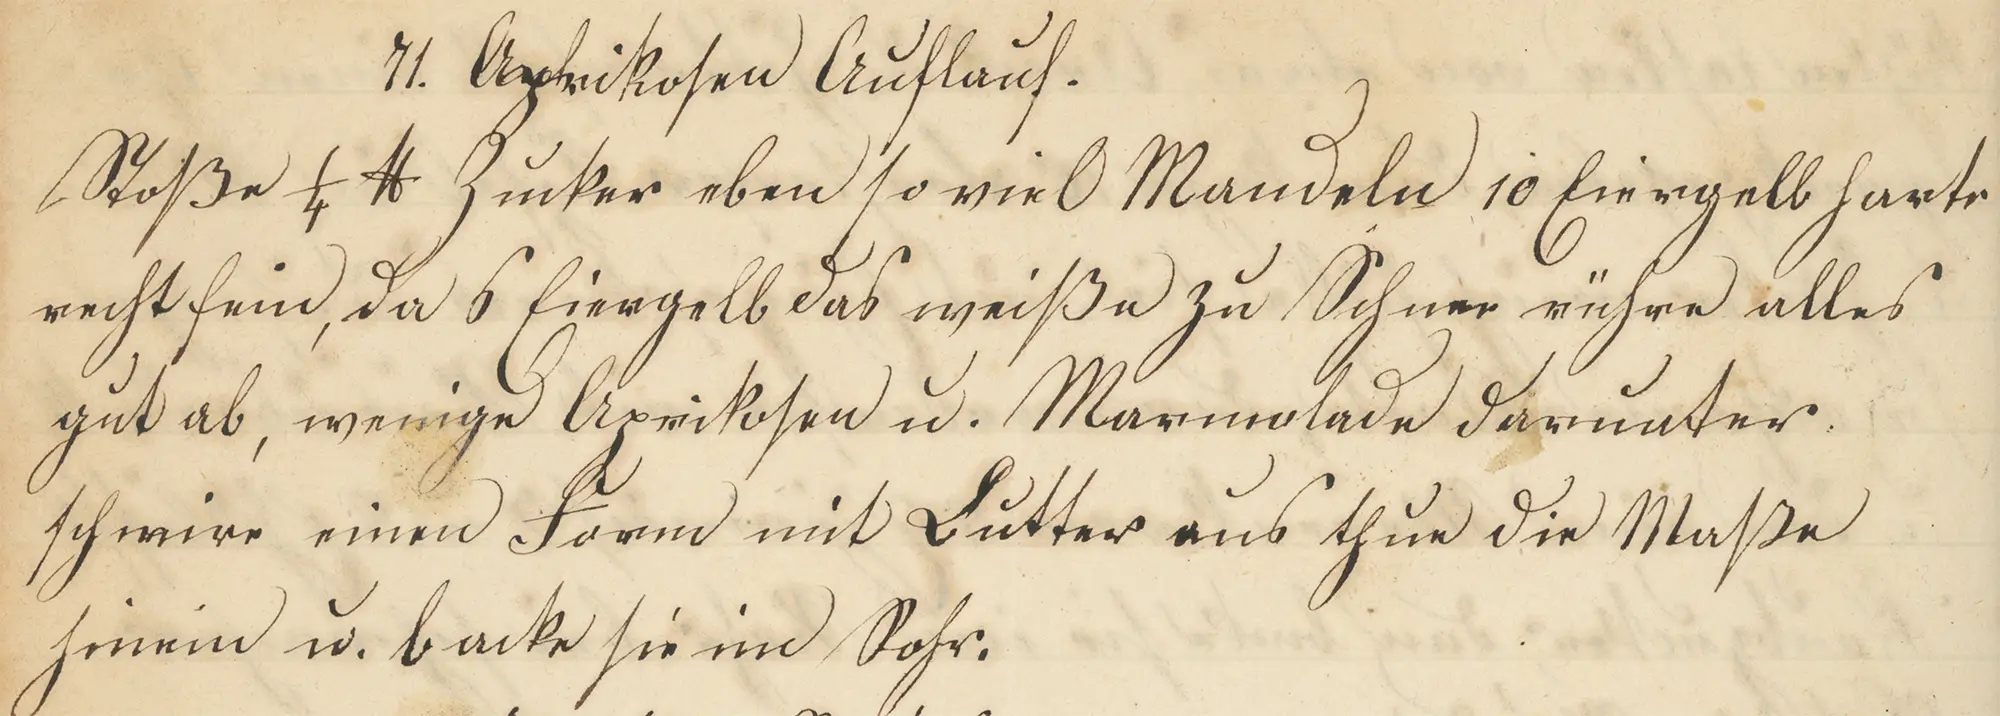 71. Aprikosen Auflauf.
Stoße 1/4 ℔ Zucker eben so viel Mandeln 10 Eiergelb harte
recht fein, da 5 Eiergelb das weiße zu Schnee rühre alles
gut ab, wenige Aprikosen u. Marmolade darunter.
schmire einen Form mit Butter aus thue die Maße
hinein u. backe sie im Rohr.